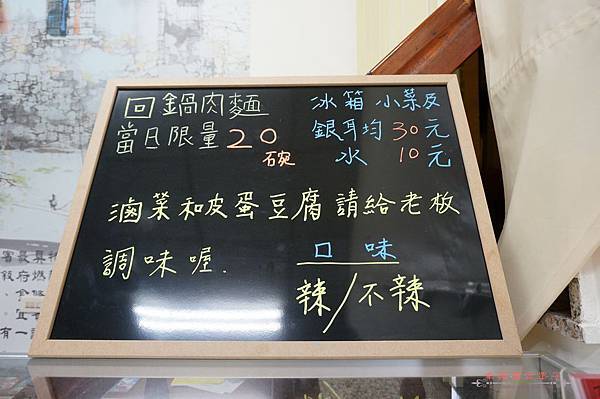 回鍋肉麵
當日限量20碗
冰箱小菜及
銀耳均30元
水 10元
滷菜和皮蛋豆腐請給老板
調味喔.
口味
辣/不辣